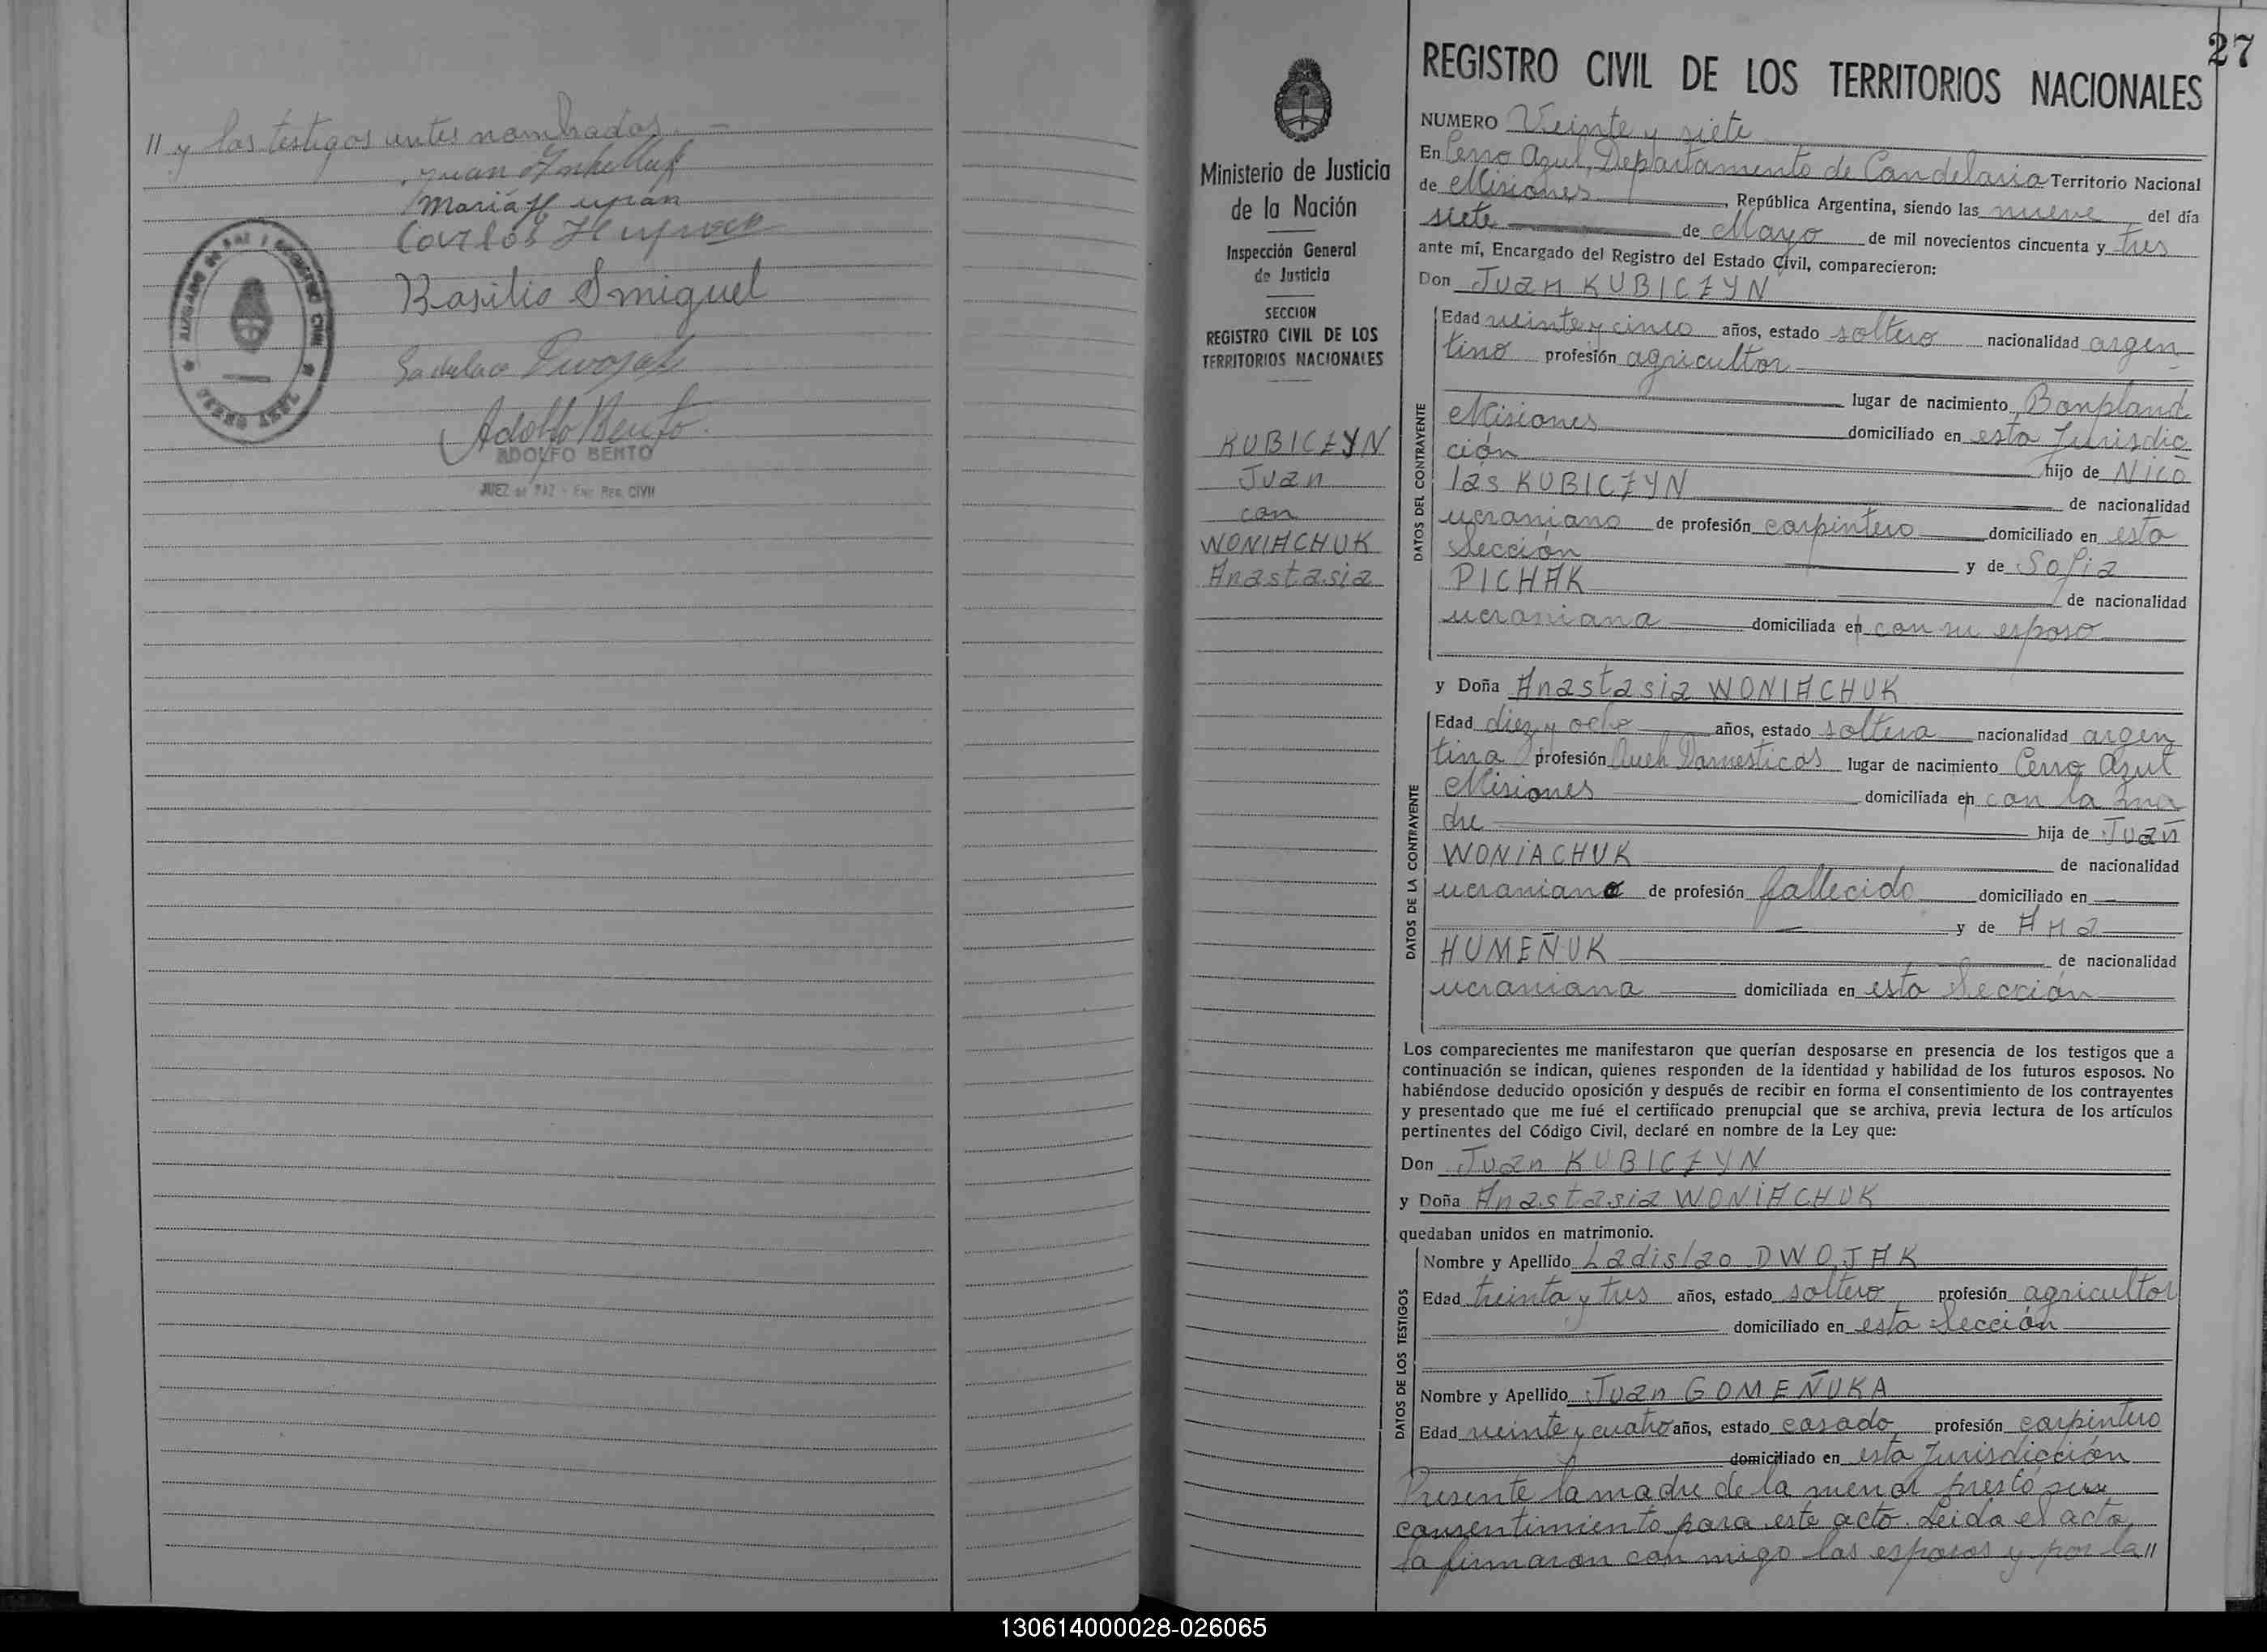 // y los testigos antes nombrados.-
Juan
María
Carlos
Basilio Smiguel
Adolfo Bento
ADOLFO BENTO
JUEZ de PAZ - Enc. Reg. CIVIL
JUZGADO DE PAZ Y REGISTRO CIVIL
CERRO AZUL
27
Ministerio de Justicia
de la Nación
Inspección General
de Justicia
SECCION
REGISTRO CIVIL DE LOS
TERRITORIOS NACIONALES
KUBICZYN
Juan
con
WONIACHUK
Anastasia
REGISTRO CIVIL DE LOS TERRITORIOS NACIONALES
NUMERO Veinte y siete
En Cerro Azul, Departamento de Candelaria Territorio Nacional
de Misiones, República Argentina, siendo las nueve del día
siete de Mayo de mil novecientos cincuenta y tres
ante mí, Encargado del Registro del Estado Civil, comparecieron:
Don Juan KUBICZYN
DATOS DEL CONTRAYENTE
Edad veinte y cinco años, estado soltero nacionalidad argen
tino profesión agricultor
lugar de nacimiento Bonpland
Misiones domiciliado en esta Jurisdic
ción hijo de Nico
lás KUBICZYN de nacionalidad
ucraniano de profesión carpintero domiciliado en esta
Sección y de Sofia
PICHAK de nacionalidad
ucraniana domiciliada en con su esposo
y Doña Anastasia WONIACHUK
DATOS DE LA CONTRAYENTE
Edad diez y ocho años, estado soltera nacionalidad argen
tina profesión Queh Domesticos lugar de nacimiento Cerro Azul
Misiones domiciliada en con la ma
dre hija de Juan
WONIACHUK de nacionalidad
ucraniano de profesión fallecido domiciliado en —
y de Ana
HUMEÑUK de nacionalidad
ucraniana domiciliada en esta Sección
Los comparecientes me manifestaron que querían desposarse en presencia de los testigos que a
continuación se indican, quienes responden de la identidad y habilidad de los futuros esposos. No
habiéndose deducido oposición y después de recibir en forma el consentimiento de los contrayentes
y presentado que me fué el certificado prenupcial que se archiva, previa lectura de los artículos
pertinentes del Código Civil, declaré en nombre de la Ley que:
Don Juan KUBICZYN
y Doña Anastasia WONIACHUK
quedaban unidos en matrimonio.
DATOS DE LOS TESTIGOS
Nombre y Apellido Ladislao DWOJAK
Edad treinta y tres años, estado soltero profesión agricultor
domiciliado en esta Sección
Nombre y Apellido Juan GOMEÑUKA
Edad veinte y cuatro años, estado casado profesión carpintero
domiciliado en esta Jurisdicción
Presente la madre de la menor prestó su
consentimiento para este acto. Leida el acta,
la firmaron con migo los esposos y por la //
130614000028-026065